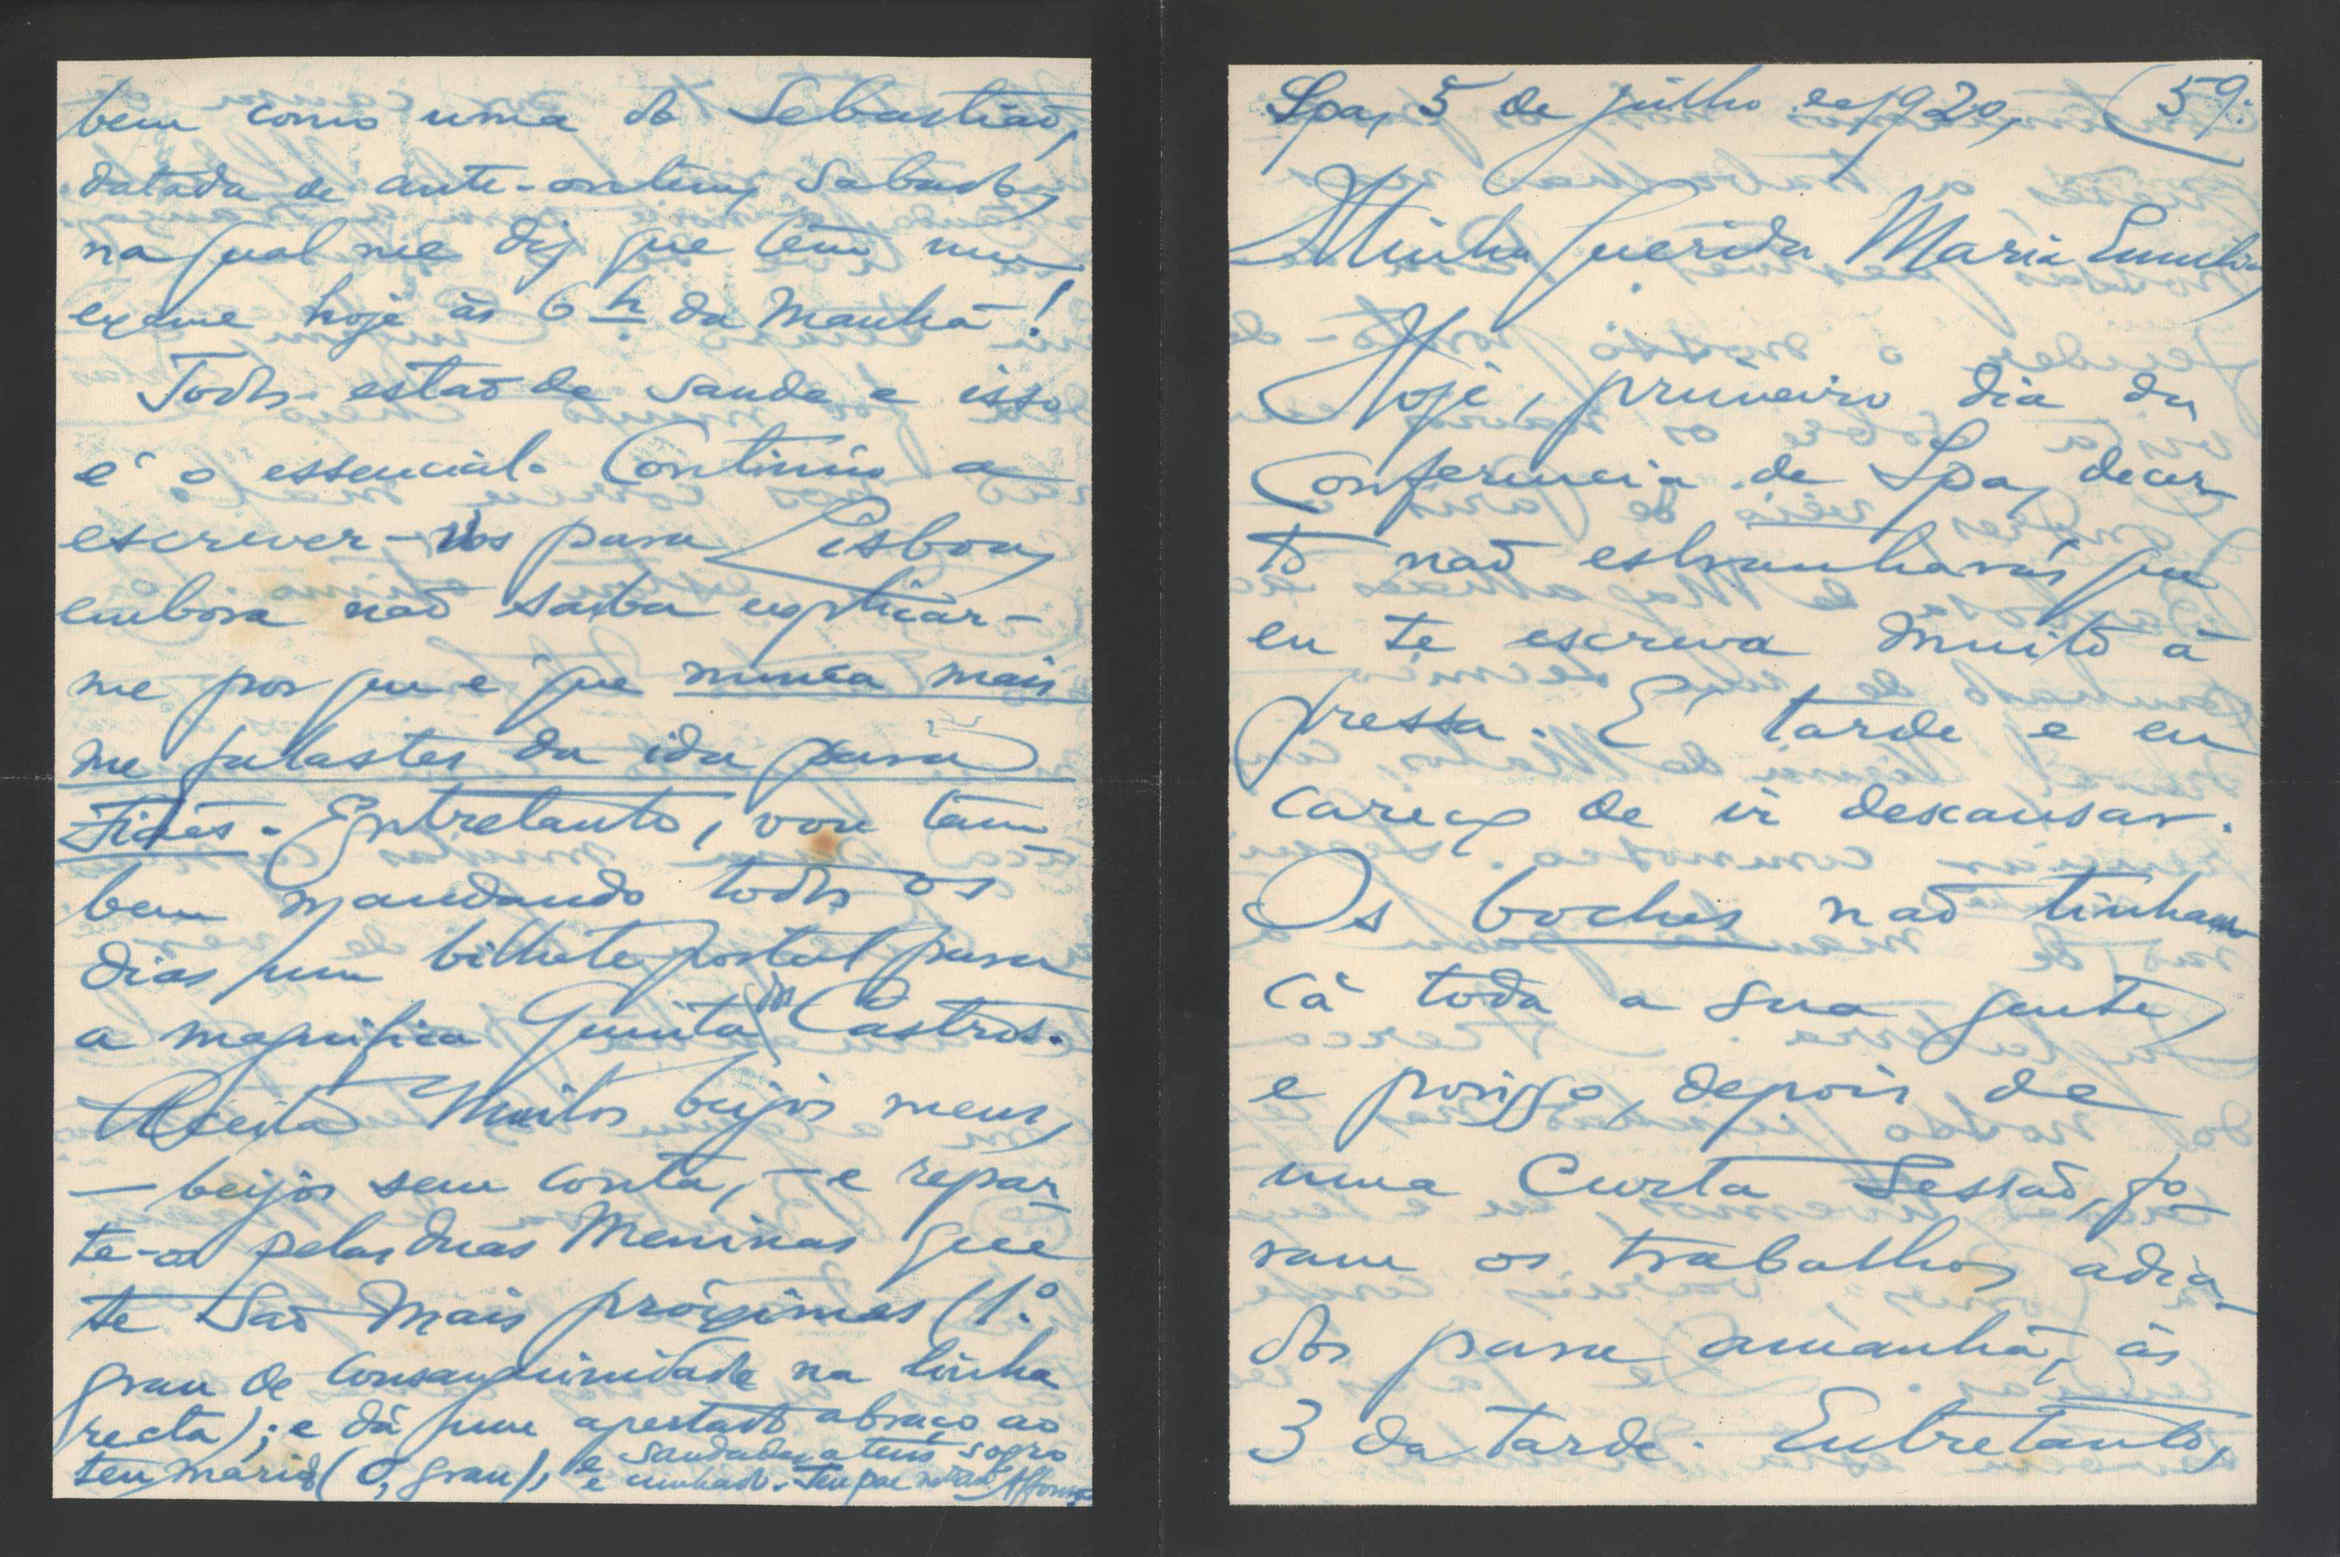 Spa, 5 de julho de 1920. (59.
Minha querida Maria Emilia
Hoje, primeiro dia da
Conferencia de Spa, decer-
to não estranharás que
eu te escreva muito á
pressa. É tarde e eu
careço de ir descansar.
Os boches não tinham
cá toda a sua gente,
e por isso, depois de
uma curta sessão, fo-
ram os trabalhos adia-
dos para amanhã, ás
3 da tarde. Entretanto,
bem como uma do Sebastião,
datada de ante-ontem, sabado,
na qual me diz que tem um
exame hoje ás 6 h da manhã!
Todos estão de saude e isso
é o essencial. Continúo a
escrever-vos para Lisboa,
embora não saiba explicar-
me por que é que nunca mais
me falastes da ida para
Fiães. Entretanto, vou tam
bem mandando todos os
dias um bilhete postal para
a magnifica Quinta dos Castros.
Aceita muitos beijos meus,
— beijos sem conta, — e repar-
te-os pelas duas meninas que
te são mais próximas (1.º
grau de consanguinidade na linha
recta); e dá um apertado abraço ao
teu marido (0, grau), e saudades a teus sogro
e cunhado. Teu pae Affonso